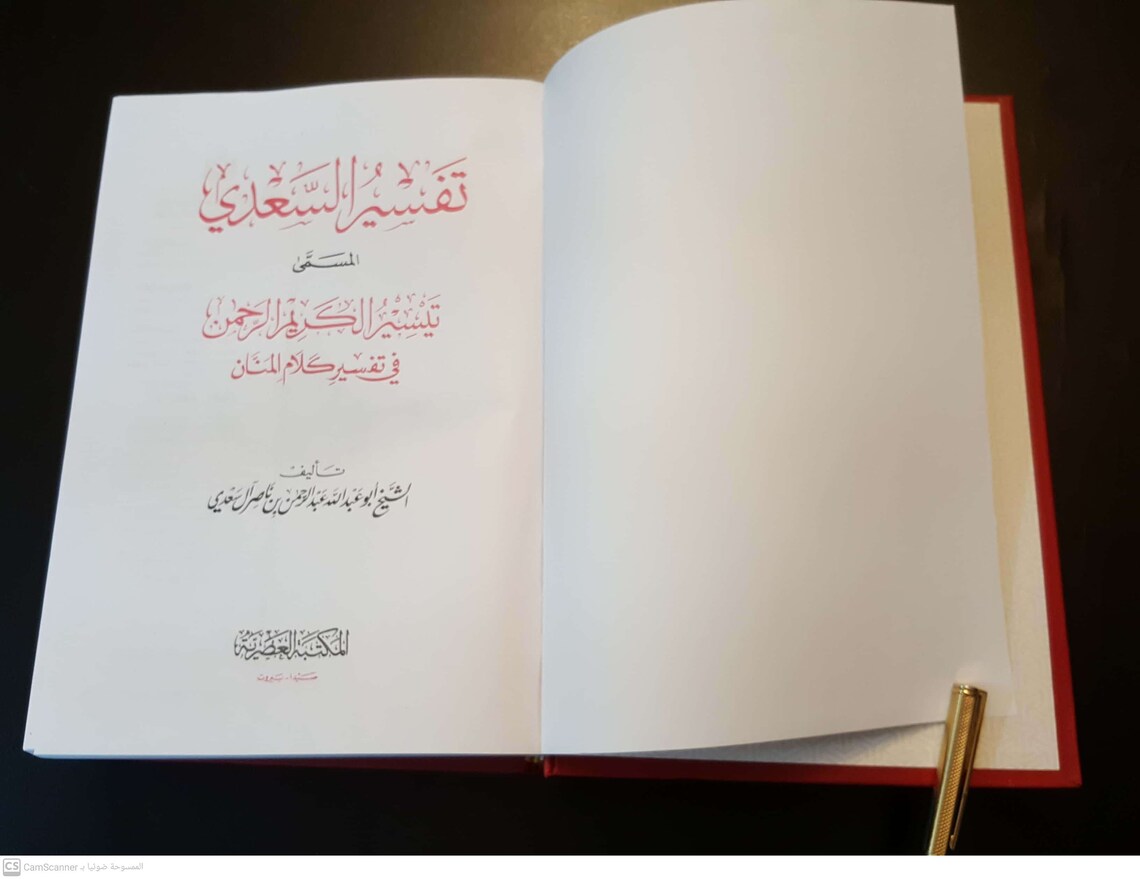 تَفْسِيرُ السَّعْدِي
المسَمَّىٰ
تَيْسِيْرُ الكَرِيْمِ الرَّحْمٰن
في تفسير كَلَام المنَّان
تأليف
الشَّيْخ أبُو عَبْد اللّٰه عَبْد الرَّحْمٰن بْن نَاصِر آل سَعْدِي
المكتبة العصرية
صَيْدا - بَيروت
CS CamScanner الممسوحة ضوئيا بـ